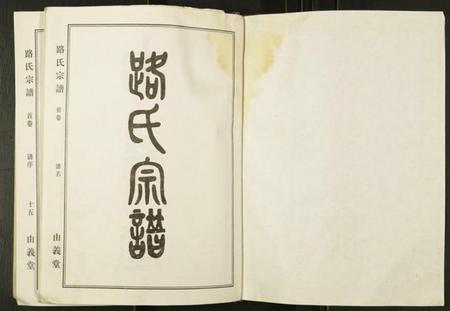 路氏宗譜
路氏宗譜 首卷 譜名 由義堂
路氏宗譜 首卷 譜序 十五 由義堂